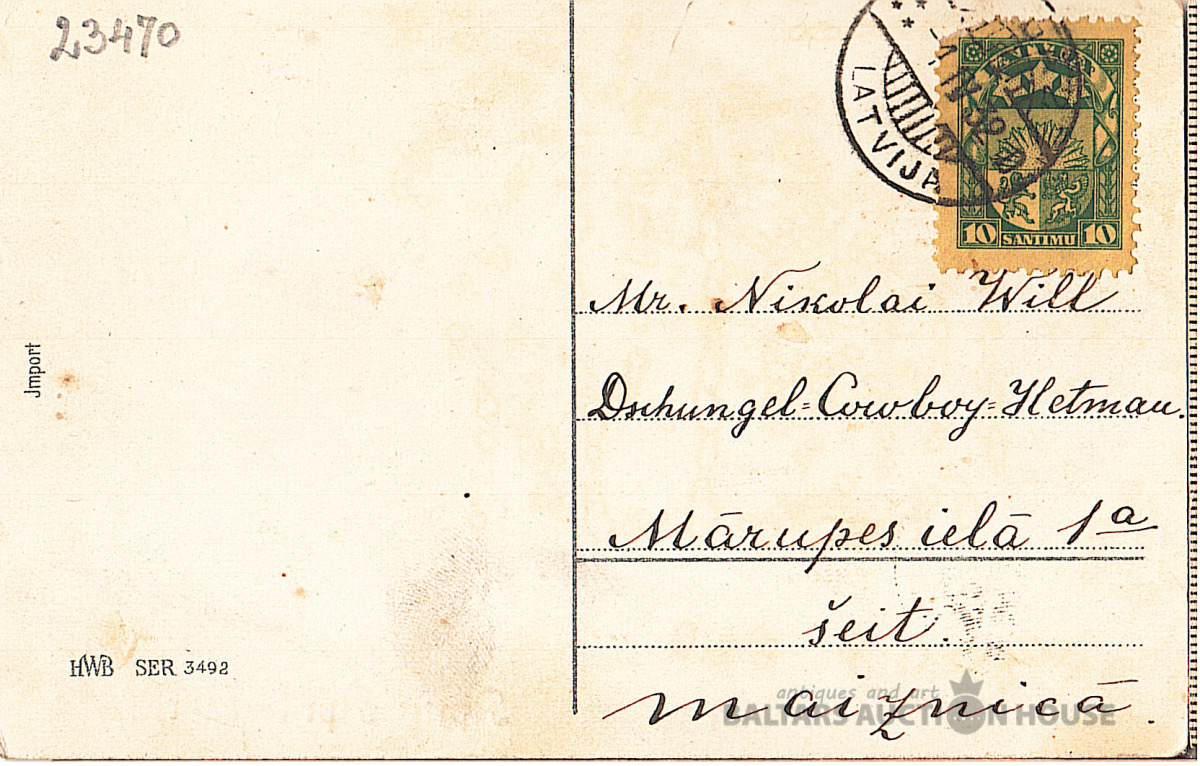 23470
LATVIJA
LATVIJA
10 SANTIMU 10
Mr. Nikolai Will
Dschungel=Cowboy=Hetman.
Mārupes ielā 1a
šeit.
maiznīcā.
Jmport
HWB SER. 3492
antiques and art
BALTARS AUCTION HOUSE